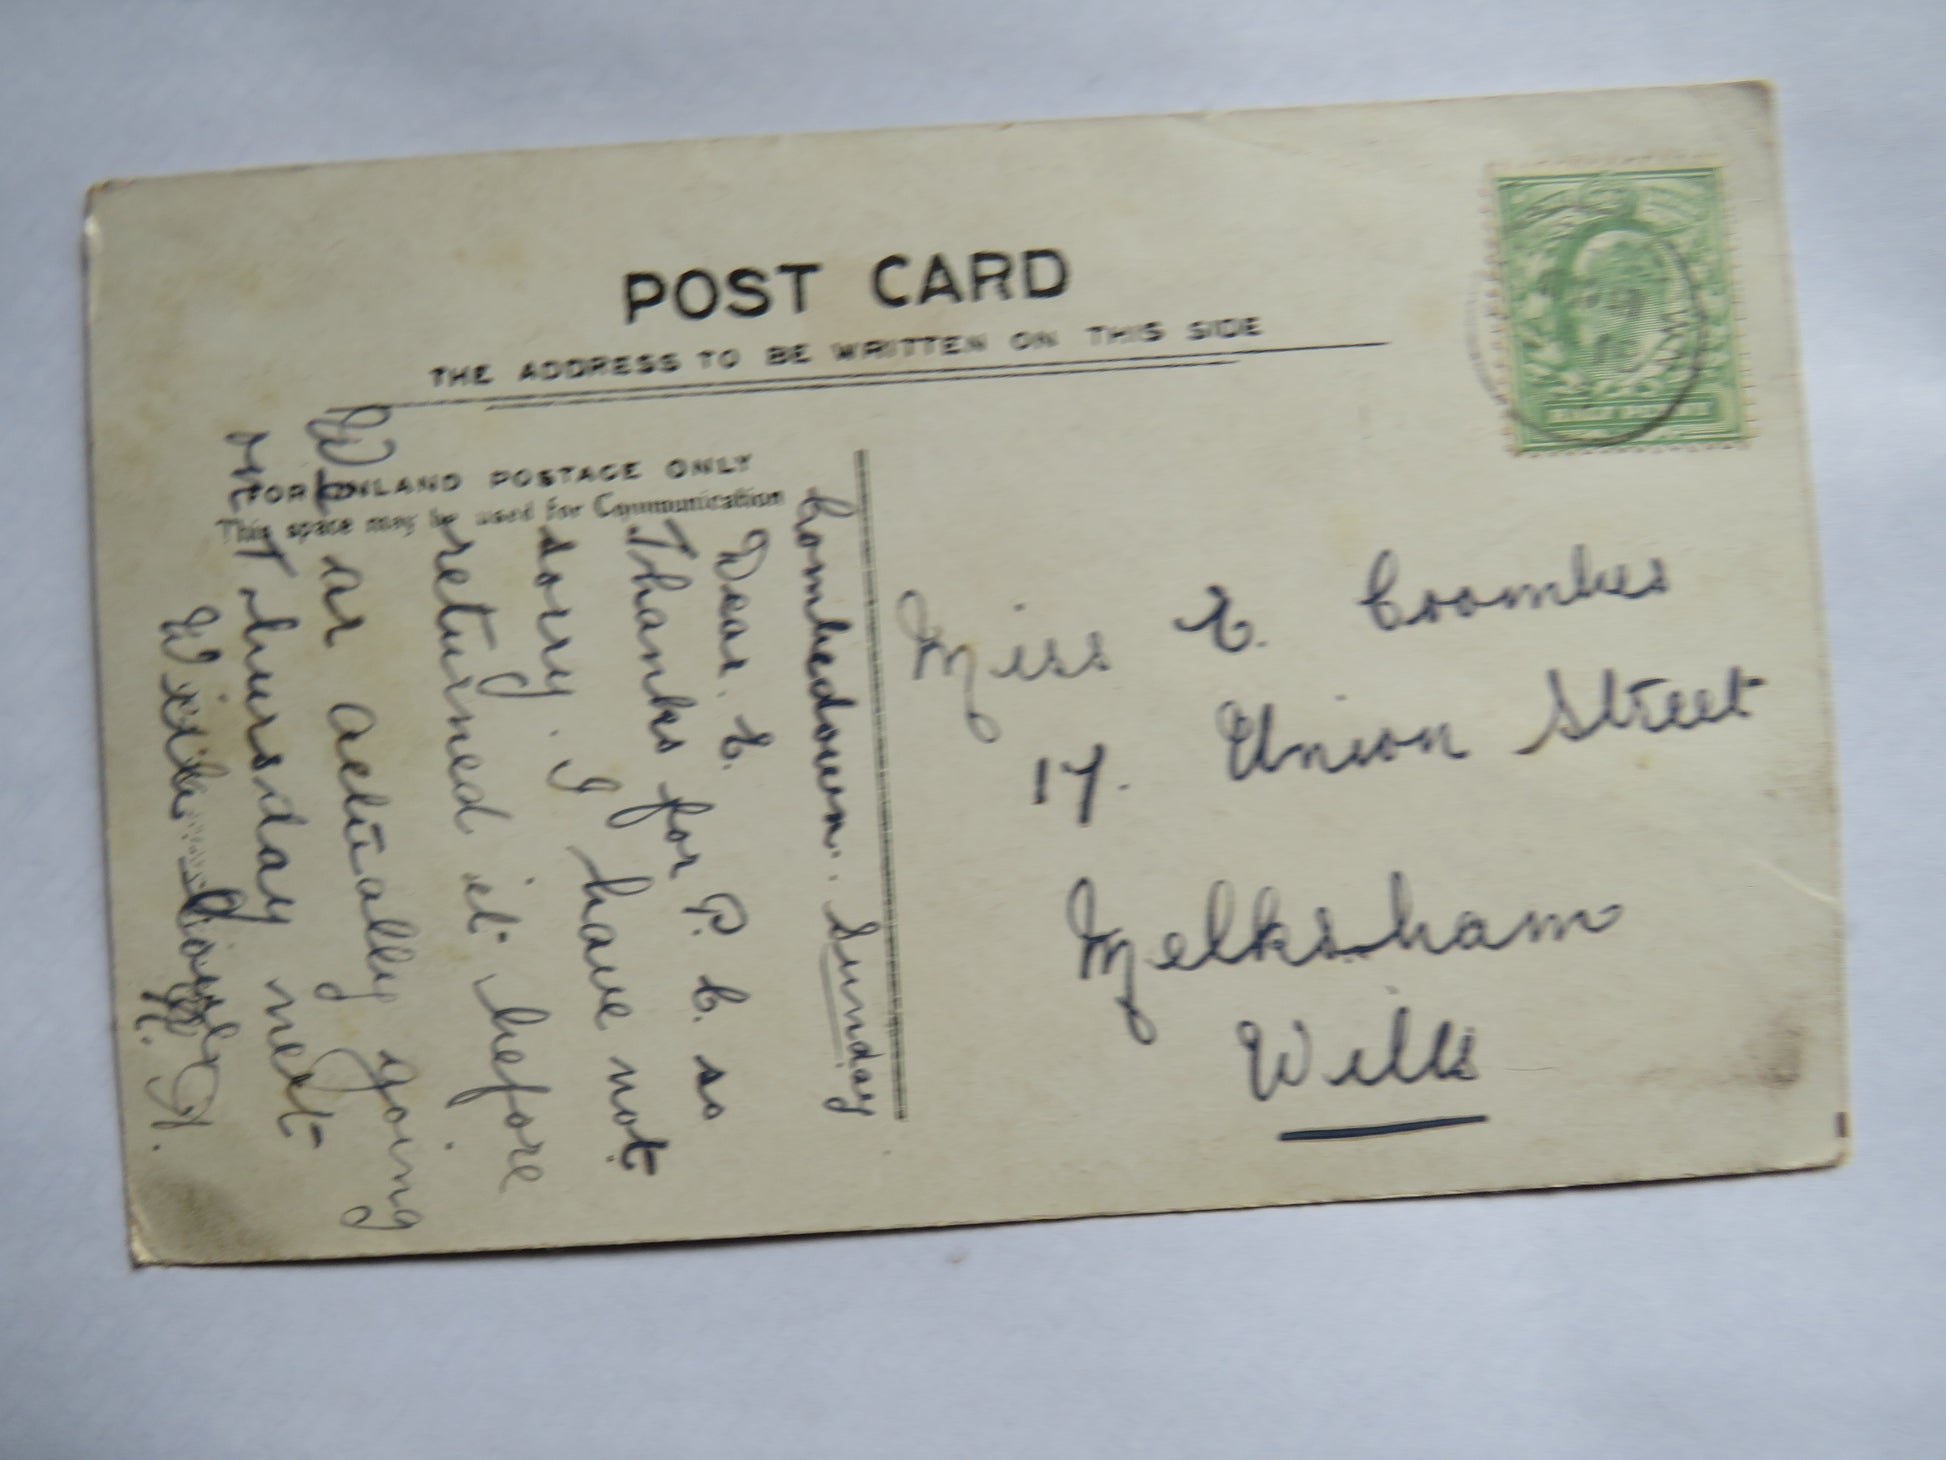 POST CARD
THE ADDRESS TO BE WRITTEN ON THIS SIDE
FOR INLAND POSTAGE ONLY
This space may be used for Communication
HALF PENNY
Combedown. Sunday
Dear. E.
Thanks for P. C. so
sorry. I have not
returned it before.
We ar actually going
on Thursday next
With love
K. H.
Miss E. Coombes
17. Union Street
Melksham
Wilts